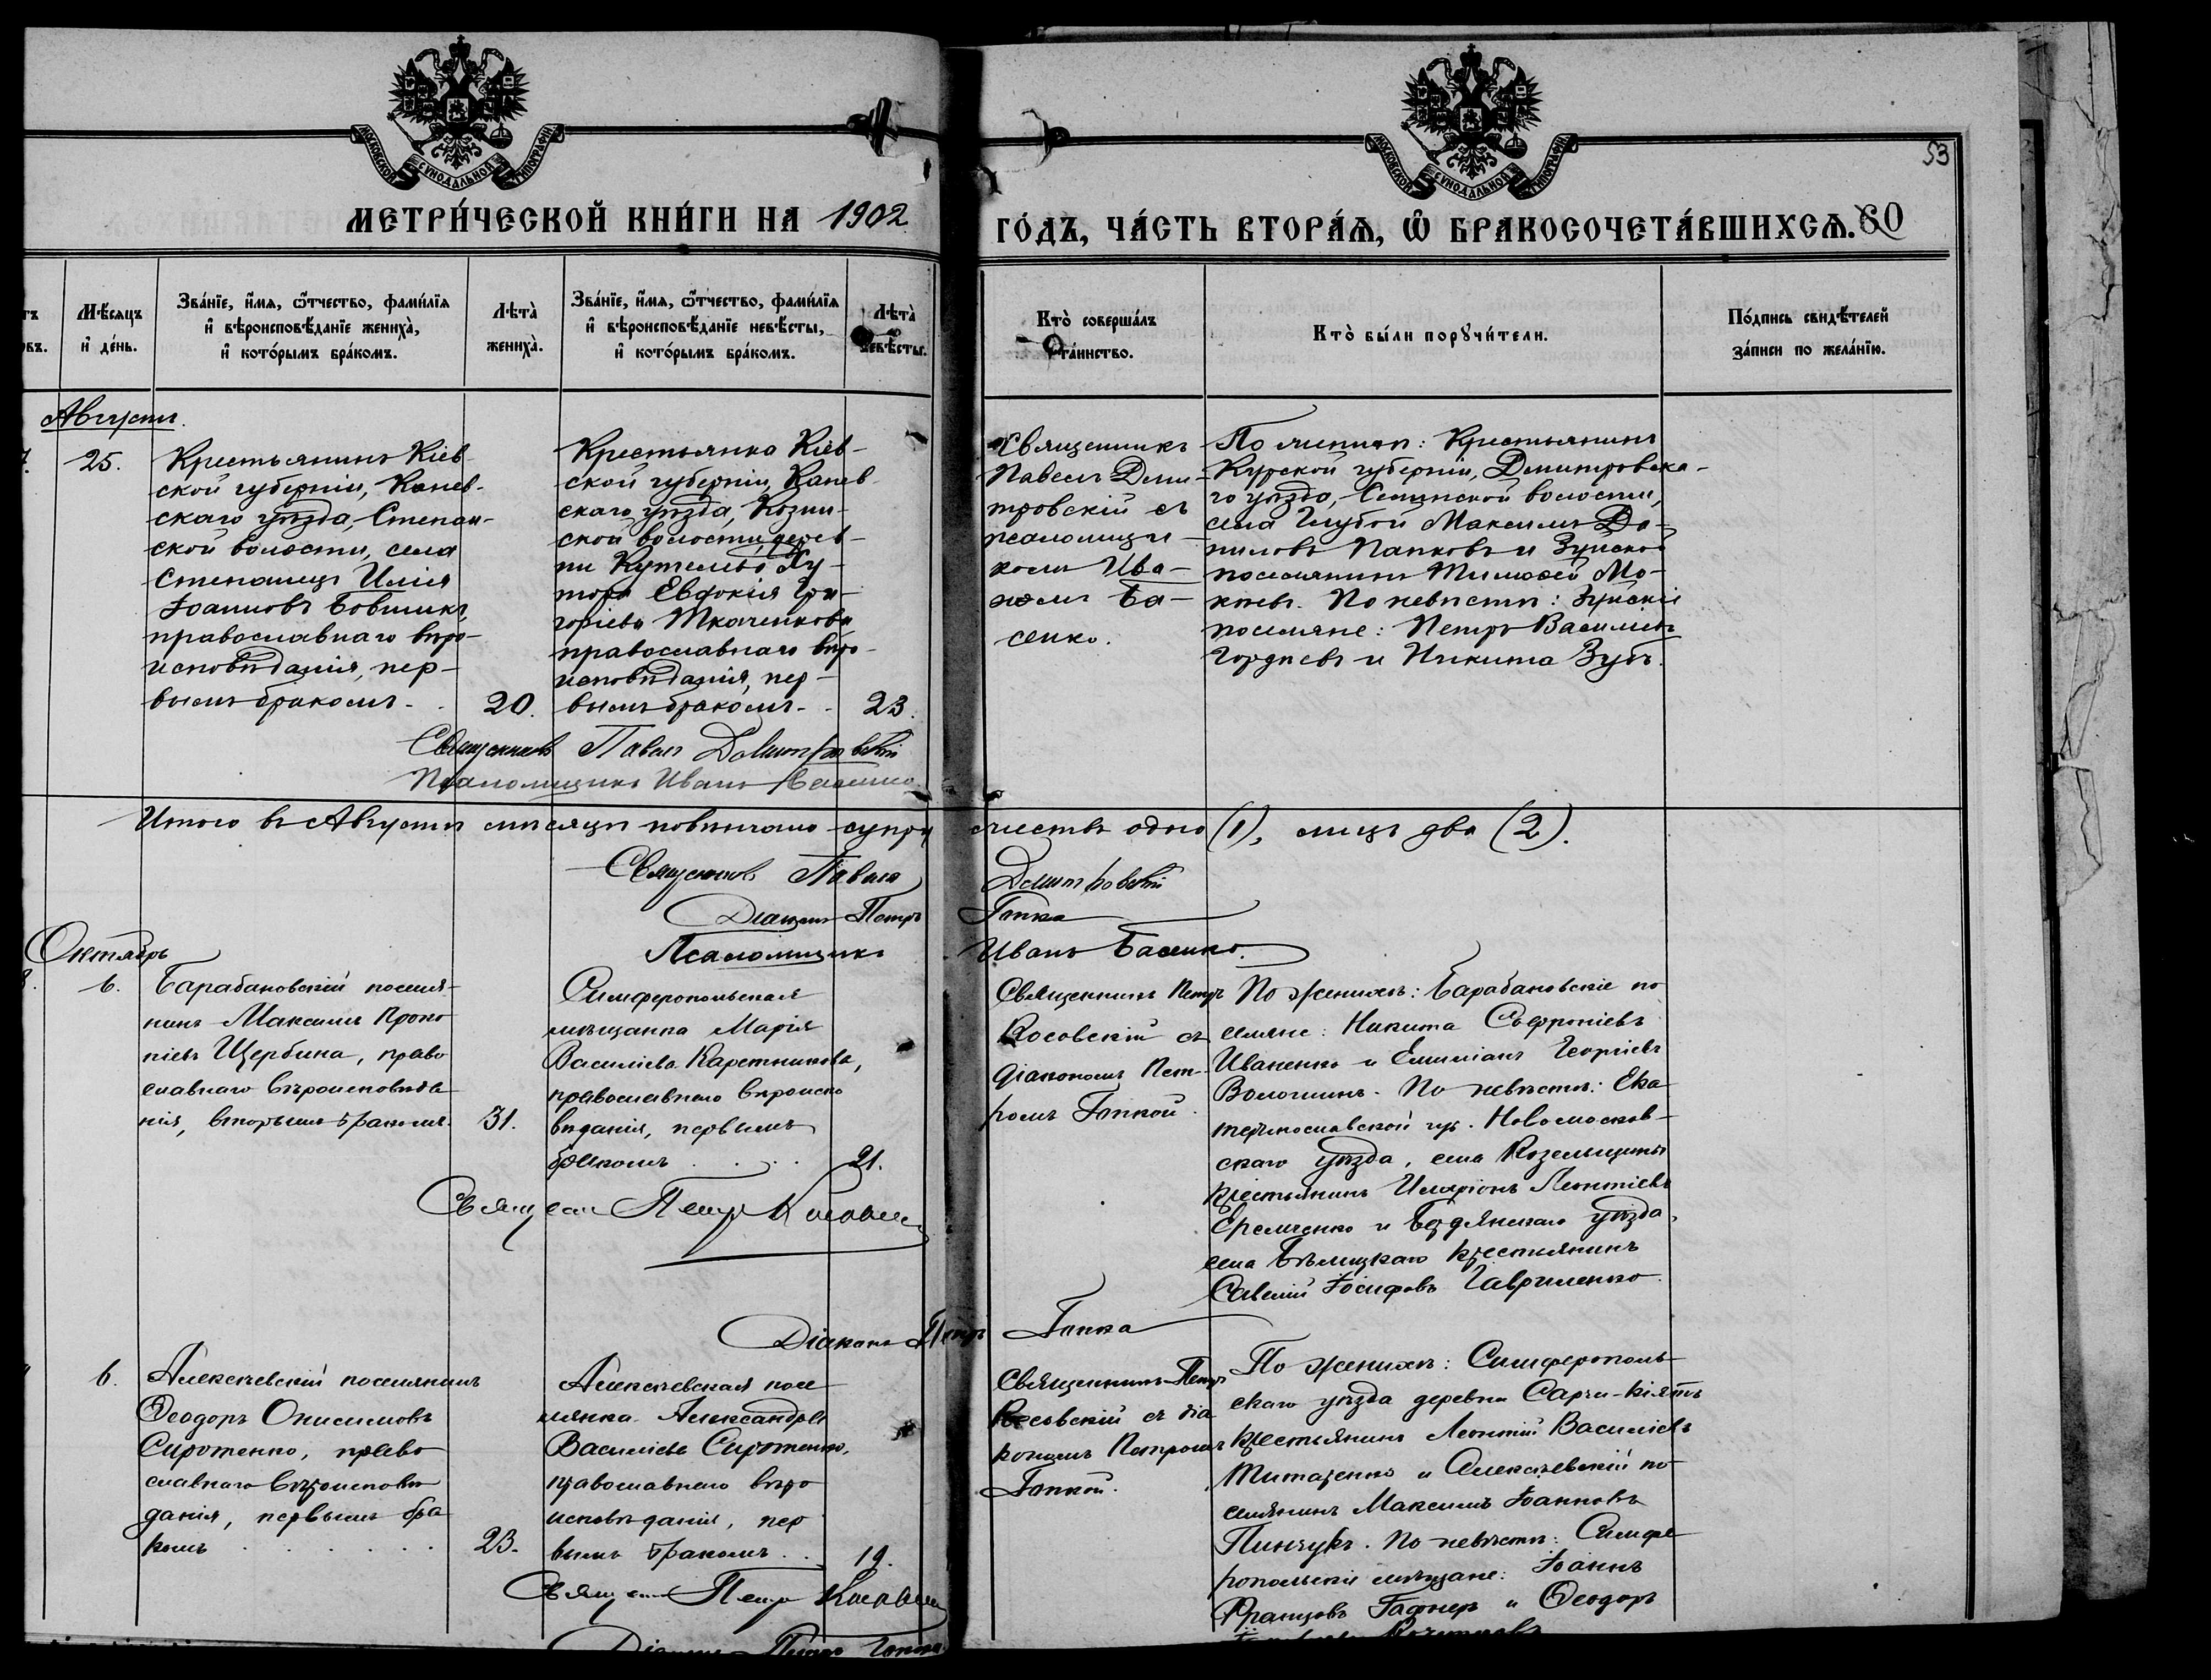 МОСКОВСКОЙ СУНОДАЛЬНОЙ ТИПОГРАФІИ
МОСКОВСКОЙ СУНОДАЛЬНОЙ ТИПОГРАФІИ
53
МЕТРИ́ЧЕСКОЙ КНИ́ГИ НА 1902
ГО́ДЪ, ЧА́СТЬ ВТОРА́Ѧ, Ѡ҆ БРАКОСОЧЕТА́ВШИХСѦ. 60
Мѣ́сяцъ
и҆ де́нь.
Зва́нїе, и҆́мѧ, ѻ҆́тчество, фами́лїѧ
и҆ вѣроисповѣ́данїе жениха̀,
и҆ кото́рымъ бра́комъ.
Лѣ́та
жениха̀.
Зва́нїе, и҆́мѧ, ѻ҆́тчество, фами́лїѧ
и҆ вѣроисповѣ́данїе невѣ́сты,
и҆ кото́рымъ бра́комъ.
Лѣ́та
невѣ́сты.
Кто̀ соверша́лъ
та́инство.
Кто̀ бы́ли порꙋчи́тели.
По́дпись свидѣ́телей
за́писи по жела́нїю.
Августъ.
25.
Крестьянинъ Кіев
ской губерніи, Канев-
скаго уѣзда, Степан-
ской волости, села
Степанецъ Илія
Іоанновъ Бовшикъ,
православнаго вѣро-
исповѣданія, пер-
вымъ бракомъ.
20.
Крестьянка Кіев-
ской губерніи, Канев-
скаго уѣзда, Козин-
ской волости, дерев-
ни Ху-
тора Евдокія Гри-
горіева Ткаченкова
православнаго вѣро-
исповѣданія, пер-
вымъ бракомъ.
23.
Священникъ
Павелъ Дими-
тровскій съ
псаломщи-
комъ Ива-
номъ Ба-
сенко.
По женихѣ: Крестьянинъ
Курской губерніи, Дмитровска-
го уѣзда, волости,
села Максимъ Да-
ниловъ Папковъ и Зуйской
поселянинъ Тимоѳей Мо-
. По невѣстѣ: Зуйскіе
поселяне: Петръ Васильевъ
Гордѣевъ и Никита Зубъ.
Священникъ Павелъ Димитровскій
Псаломщикъ Иванъ Басенко
Итого въ Августѣ мѣсяцѣ повѣнчано супру
жествъ одно (1), лицъ два (2).
Священникъ Павелъ Димитровскій
Діаконъ Петръ Гопка
Псаломщикъ Иванъ Басенко.
Октябрь
6.
Барабановскій поселя-
нинъ Максимъ Проко
піевъ Щербина, право
славнаго вѣроисповѣда
нія, вторымъ бракомъ.
31.
Симферопольская
мѣщанка Марія
Василіева Каретникова,
православнаго вѣроиспо
вѣданія, первымъ
бракомъ . . .
21.
Священникъ Петръ
Косовскій съ
діакономъ Пет-
ромъ Гопкой.
По женихѣ: Барабановскіе по
селяне: Никита Софроніевъ
Иваненко и Емиліанъ Георгіевъ
Волошинъ. По невѣстѣ: Ека
теринославской губ. Новомосков-
скаго уѣзда, села Козельщины
крестьянинъ Иларіонъ Леонтіевъ
Еремченко и Бердянскаго уѣзда,
села Бѣлицкаго крестьянинъ
Савелій Іосифовъ Гавриленко.
Священ Петръ Косовскій
Діаконъ Петръ Гопка
6.
Алексѣевскій поселянинъ
Ѳеодоръ Онисимовъ
Сиротенко, право
славнаго вѣроисповѣ
данія, первымъ бра
комъ . . . . . .
23.
Алексѣевская посе
лянка Александра
Василіева Сиротенко,
православнаго вѣро
исповѣданія, пер
вымъ бракомъ . .
19.
Священникъ Петръ
Косовскій съ діа
кономъ Петромъ
Гопкой.
По женихѣ: Симферополь
скаго уѣзда деревни Сарчи-Кіятъ
крестьянинъ Леонтій Василіевъ
Титаренко и Алексѣевскій по
селянинъ Максимъ Іоанновъ
Пинчукъ. По невѣстѣ: Симфе
ропольскіе мѣщане: Іоаннъ
Францовъ Гафнеръ и Ѳеодоръ
Священ Петръ Косовскій
Діаконъ Петръ Гопка